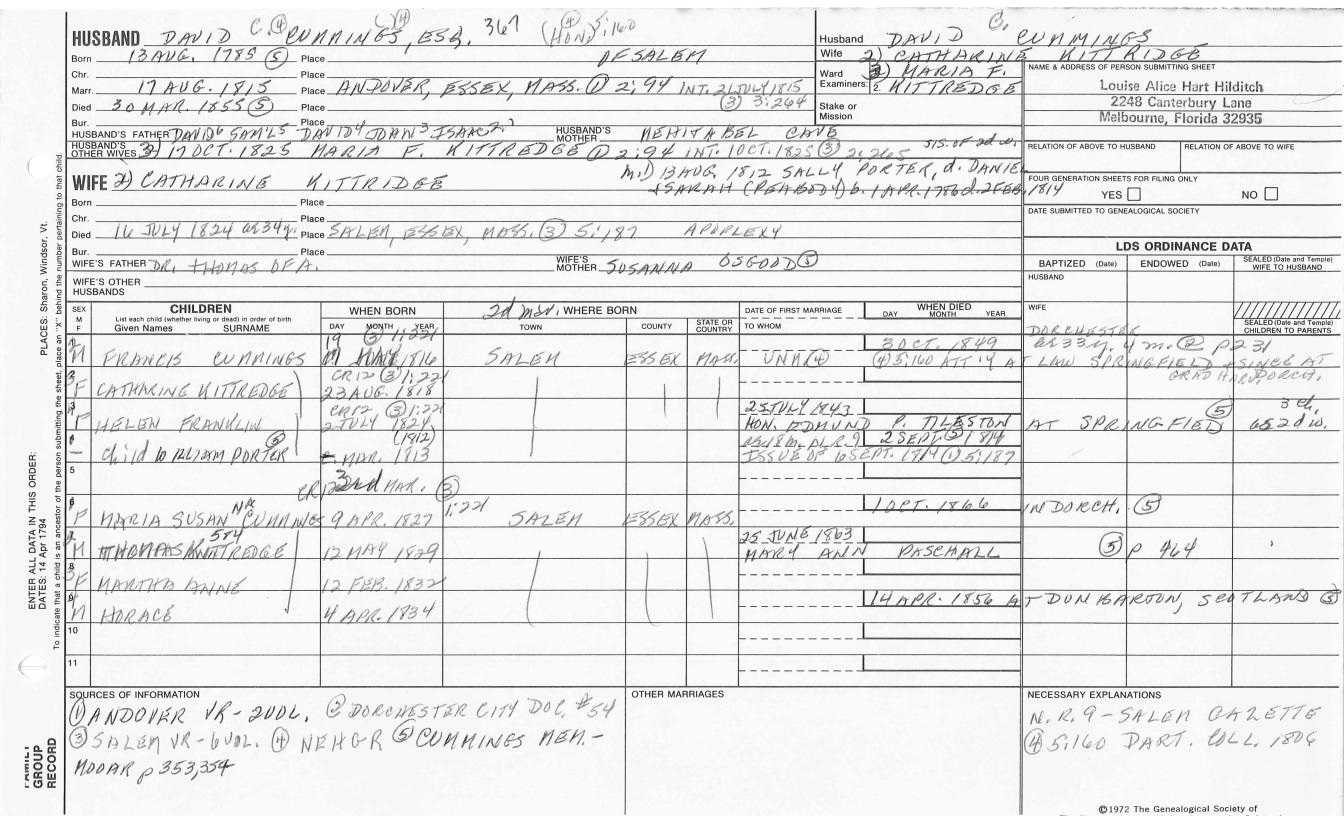 HUSBAND DAVID C. ④ CUMMINGS, ESQ. ④ 367 (HON) ④ 5:160
Born 13 AUG. 1785 ⑤ Place OF SALEM
Chr. Place
Marr. 17 AUG. 1815 Place ANDOVER, ESSEX, MASS. ① 2:94 INT. 21 JULY 1815
Died 30 MAR. 1855 ⑤ Place ③ 3:264
Bur. Place
HUSBAND'S FATHER DAVID⁶ SAM'L⁵ DAVID⁴ JOHN³ ISAAC²,¹ HUSBAND'S MOTHER MEHITABEL CAVE
HUSBAND'S OTHER WIVES 3) 17 OCT. 1825 MARIA F. KITTREDGE ① 2:94 INT. 1 OCT. 1825 ③ 3:265 SIS. OF 2d w.
M. 1) 13 AUG. 1812 SALLY PORTER, d. DANIEL
+ SARAH (PEABODY) b. 1 APR. 1786 d. 2 FEB. 1814
WIFE 2) CATHARINE KITTRIDGE
Born Place
Chr. Place
Died 16 JULY 1824 ae 34y. Place SALEM, ESSEX, MASS. ③ 5:187 APOPLEXY
Bur. Place
WIFE'S FATHER DR. THOMAS OF A. WIFE'S MOTHER SUSANNA OSGOOD ⑤
WIFE'S OTHER HUSBANDS
Husband DAVID C. CUMMINGS
Wife 2) CATHARINE KITTRIDGE
Ward 3) MARIA F.
Examiners: 2. KITTREDGE
Stake or Mission
NAME & ADDRESS OF PERSON SUBMITTING SHEET
Louise Alice Hart Hilditch
2248 Canterbury Lane
Melbourne, Florida 32935
RELATION OF ABOVE TO HUSBAND RELATION OF ABOVE TO WIFE
FOUR GENERATION SHEETS FOR FILING ONLY
YES NO
DATE SUBMITTED TO GENEALOGICAL SOCIETY
LDS ORDINANCE DATA
BAPTIZED (Date) ENDOWED (Date) SEALED (Date and Temple) WIFE TO HUSBAND
HUSBAND
WIFE
SEALED (Date and Temple) CHILDREN TO PARENTS
SEX M F CHILDREN WHEN BORN 2d mar. WHERE BORN DATE OF FIRST MARRIAGE WHEN DIED
List each child (whether living or dead) in order of birth
Given Names SURNAME DAY MONTH YEAR TOWN COUNTY STATE OR COUNTRY TO WHOM DAY MONTH YEAR
19 ③ 1:221 3 OCT. 1849 DORCHESTER ae 33 y. 4 m. ② p 231
M FRANCIS CUMMINGS MAY 1816 SALEM ESSEX MASS. UNM ④ ④ 5:160 ATT'Y AT LAW SPRINGFIELD + SINCE AT DORCH. GRAD HARV.
CR12 ③ 1:221
F CATHARINE KITTREDGE 23 AUG. 1818
CR12 ③ 1:221 25 JULY 1843 ⑤ 3 ch.
F HELEN FRANKLIN 2 JULY 1824 HON. EDMUND P. TILESTON AT SPRINGFIELD as 2d w.
(1812) 2 SEPT. ⑤ 1814
child WILLIAM PORTER ⑤ MAR. 1813 ISSUE OF 6 SEPT. 1814 ① 5:187
5
CR12 3rd MAR. ③
F MARIA SUSAN CUMMINGS 9 APR. 1827 1:221 SALEM ESSEX MASS. 1 OCT. 1866 IN DORCH. ⑤
584 25 JUNE 1863
M THOMAS KITTREDGE 12 MAY 1829 MARY ANN PASCHALL ⑤ p 464
F MARTHA ANNE 12 FEB. 1832
M HORACE 4 APR. 1834 14 APR. 1856 AT DUNBARTON, SCOTLAND ⑤
10
11
SOURCES OF INFORMATION
① ANDOVER VR-2VOL. ② DORCHESTER CITY DOC. #54
③ SALEM VR-6VOL. ④ NEHGR ⑤ CUMMINGS MEM.-
MOOAR p 353,354
OTHER MARRIAGES
NECESSARY EXPLANATIONS
N.R. 9 - SALEM GAZETTE
④ 5:160 DART. COLL. 1806
©1972 The Genealogical Society of
PLACES: Sharon, Windsor, Vt.
ENTER ALL DATA IN THIS ORDER:
DATES: 14 Apr 1794
To indicate that a child is an ancestor of the person submitting the sheet, place an "X" behind the number pertaining to that child
FAMILY GROUP RECORD